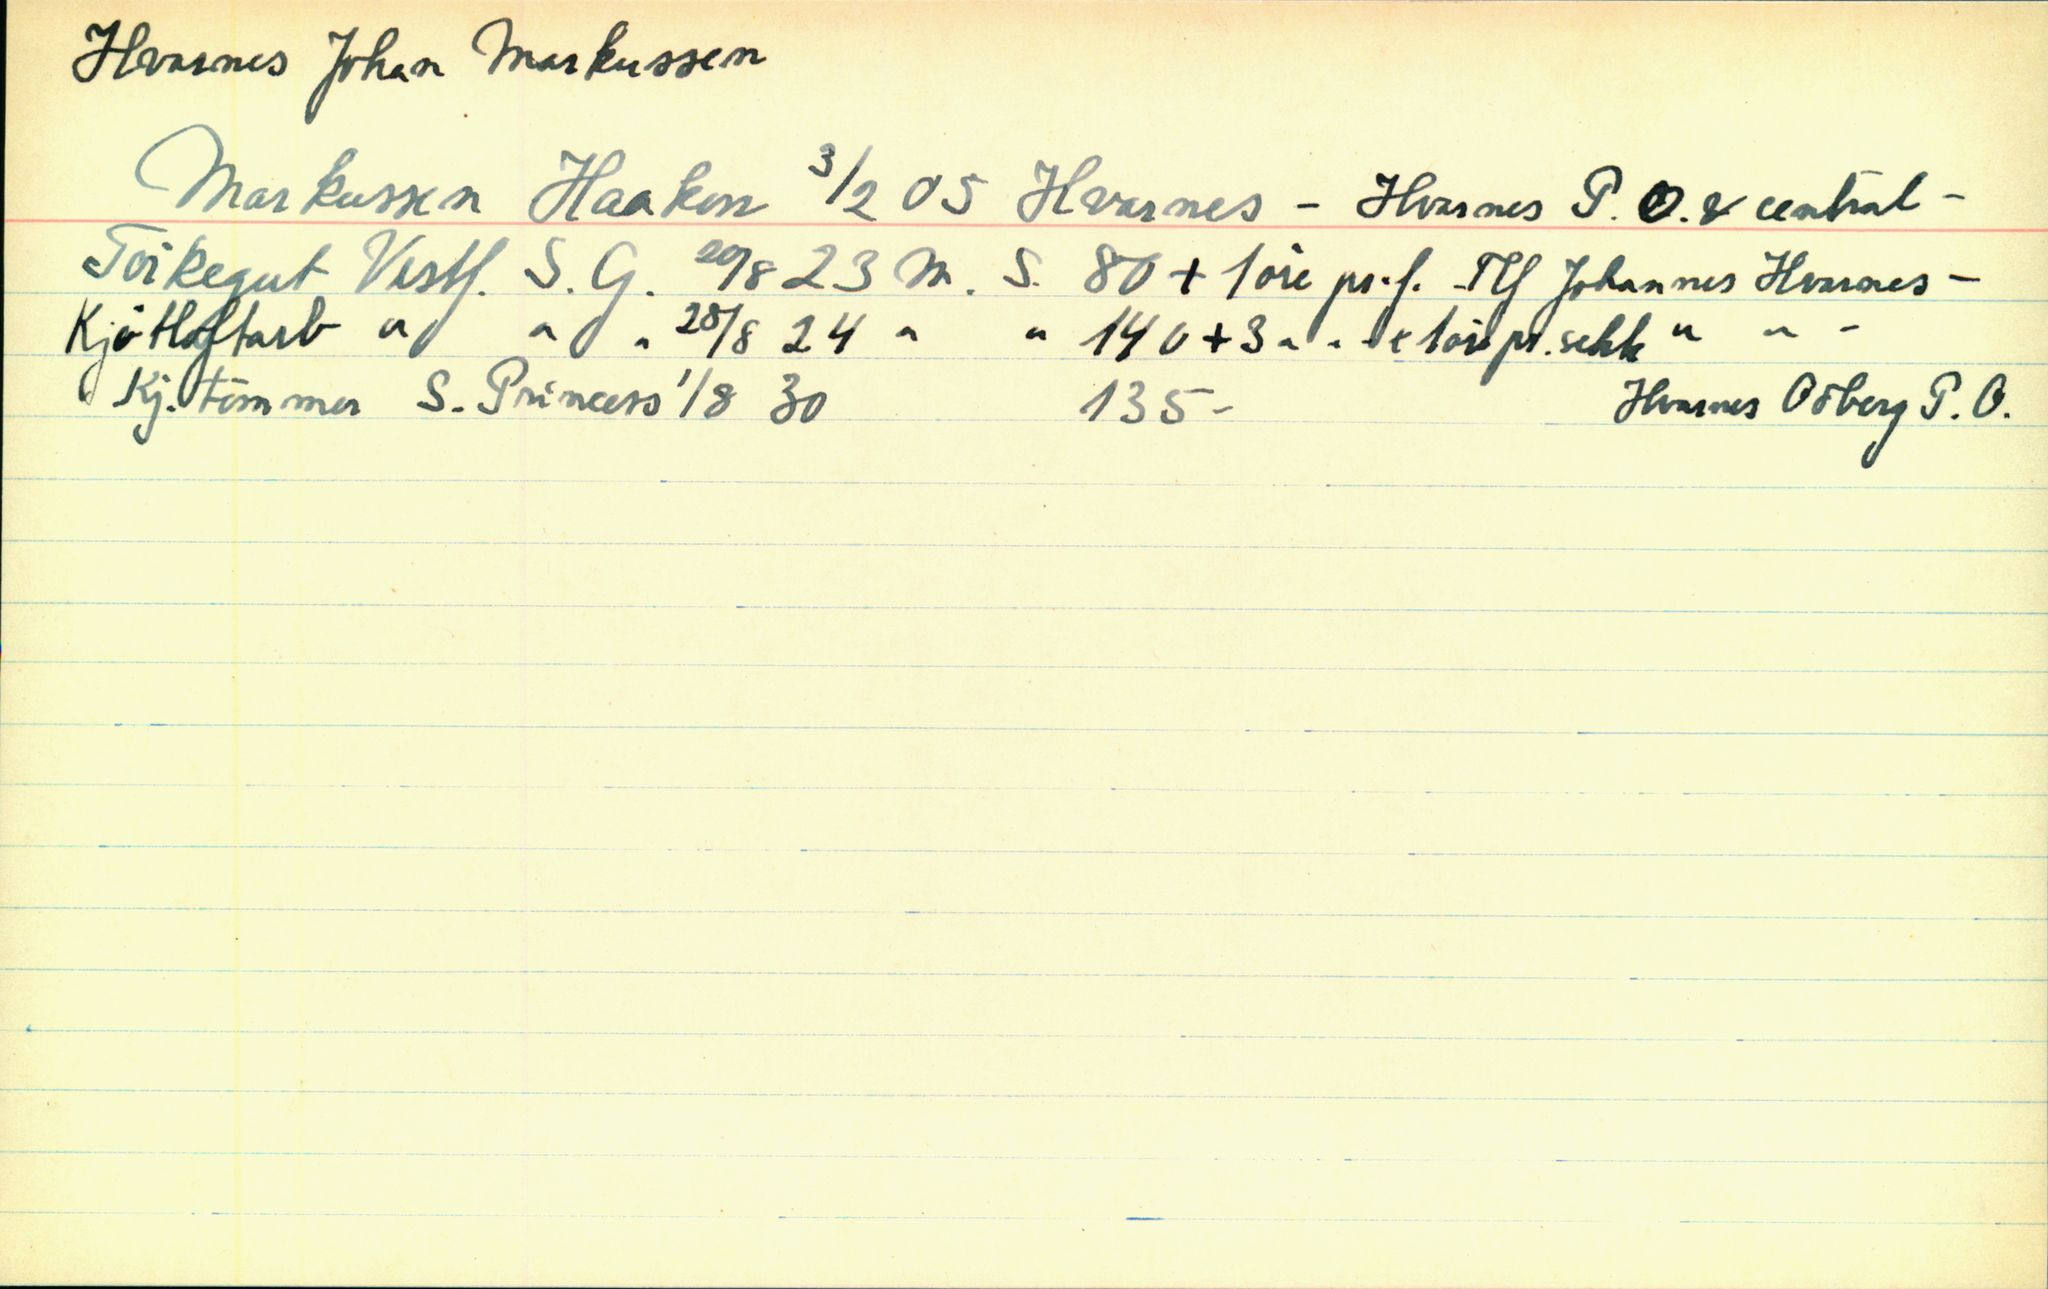 Hvarnes Johan Markussen
Markussen Haakon 3/2 05 Hvarnes - Hvarnes P.O. & central -
Törkegut Vestf. S. G. 20/8 23 M. S. 80 + 1 öre pr. f. - Tlf Johannes Hvarnes -
Kjötloftarb " " " 28/8 24 " " 140 + 3 " " + 1 öre pr. sekk " " -
Kj. tömmer S. Princess 1/8 30 135 - Hvarnes Odberg P. O.